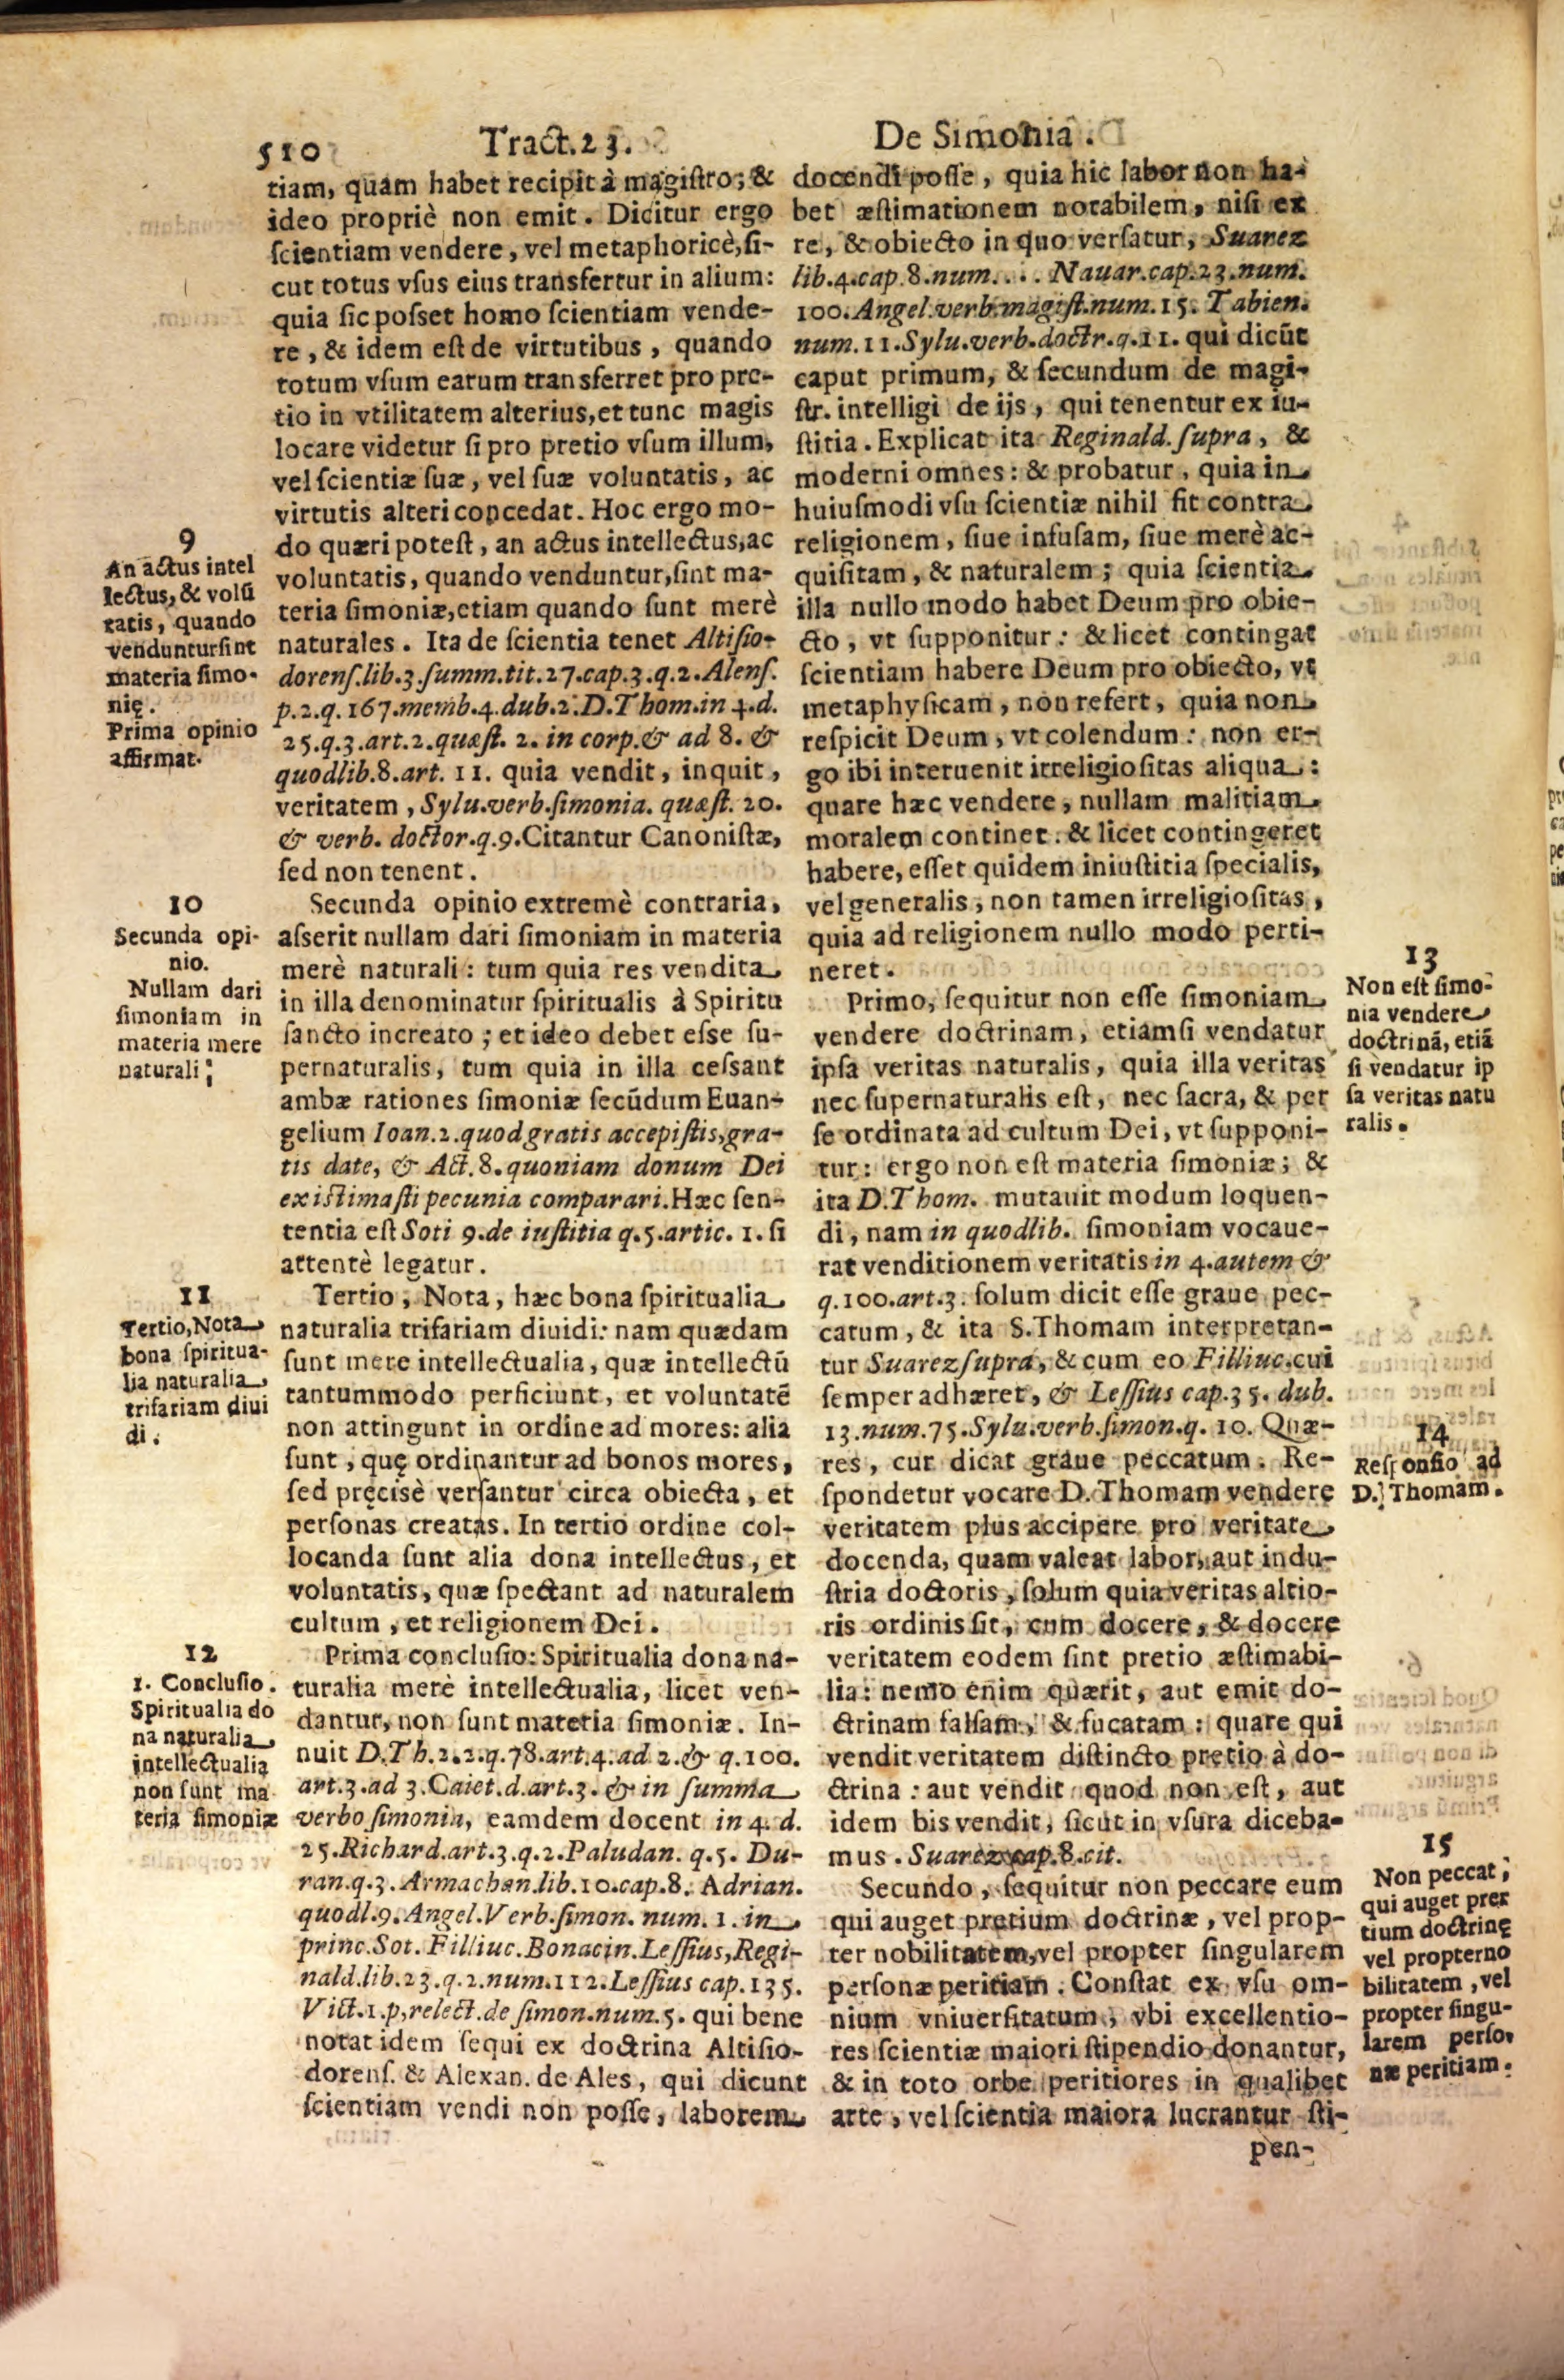 510 Tract.23. De Simonia.
tiam, quam habet recipit à magiſtro; &
ideo propriè non emit. Dicitur ergo
ſcientiam vendere, vel metaphoricè, ſi-
cut totus vſus eius transfertur in alium:
quia ſic poſset homo ſcientiam vende-
re, & idem eſt de virtutibus, quando
totum vſum earum transferret pro pre-
tio in vtilitatem alterius, et tunc magis
locare videtur ſi pro pretio vſum illum,
vel ſcientiæ ſuæ, vel ſuæ voluntatis, ac
virtutis alteri concedat. Hoc ergo mo-
do quæri poteſt, an actus intellectus, ac
voluntatis, quando venduntur, ſint ma-
teria ſimoniæ, etiam quando ſunt merè
naturales. Ita de ſcientia tenet Altiſio-
dorenſ.lib.3.ſumm.tit.27.cap.3.q.2.Alenſ.
p.2.q.167.memb.4.dub.2.D.Thom.in 4.d.
25.q.3.art.2.quæſt. 2. in corp.& ad 8. &
quodlib.8.art. 11. quia vendit, inquit,
veritatem, Sylu.verb.ſimonia. quæſt. 20.
& verb. doctor.q.9.Citantur Canoniſtæ,
ſed non tenent.
Secunda opinio extremè contraria,
aſserit nullam dari ſimoniam in materia
merè naturali: tum quia res vendita
in illa denominatur ſpiritualis à Spiritu
ſancto increato; et ideo debet eſse ſu-
pernaturalis, tum quia in illa ceſsant
ambæ rationes ſimoniæ ſecūdum Euan-
gelium Ioan.2.quod gratis accepiſtis, gra-
tis date, & Act.8.quoniam donum Dei
existimaſti pecunia comparari.Hæc ſen-
tentia eſt Soti 9.de iuſtitia q.5.artic. 1. ſi
attentè legatur.
Tertio, Nota, hæc bona ſpiritualia
naturalia trifariam diuidi: nam quædam
ſunt mere intellectualia, quæ intellectū
tantummodo perficiunt, et voluntatē
non attingunt in ordine ad mores: alia
ſunt, quę ordinantur ad bonos mores,
ſed pręcisè verſantur circa obiecta, et
perſonas creatas. In tertio ordine col-
locanda ſunt alia dona intellectus, et
voluntatis, quæ ſpectant ad naturalem
cultum, et religionem Dei.
Prima concluſio: Spiritualia dona na-
turalia merè intellectualia, licet ven-
dantur, non ſunt materia ſimoniæ. In-
nuit D.Th.2.2.q.78.art.4.ad 2.& q.100.
art.3.ad 3.Caiet.d.art.3.& in ſumma
verbo ſimonia, eamdem docent in 4. d.
25.Richard.art.3.q.2.Paludan. q.5. Du-
ran.q.3. Armachan.lib.10.cap.8. Adrian.
quodl.9.Angel.Verb.ſimon. num. 1. in
princ.Sot. Filliuc.Bonacin.Leſſius, Regi-
nald.lib.23.q.2.num.112.Leſſius cap.135.
Vict.1.p, relect.de ſimon.num.5. qui bene
notat idem ſequi ex doctrina Altiſio-
dorenſ. & Alexan. de Ales, qui dicunt
ſcientiam vendi non poſſe, laborem
docendi poſſe, quia hic labor non ha-
bet æſtimationem notabilem, niſi ex
re, & obiecto in quo verſatur, Suarez
lib.4.cap.8.num.... Nauar.cap.23.num.
100.Angel.verb.magiſt.num.15. Tabien.
num.11.Sylu.verb.doctr.q.11. qui dicūt
caput primum, & ſecundum de magi-
ſtr. intelligi de ijs, qui tenentur ex iu-
ſtitia. Explicat ita Reginald. ſupra, &
moderni omnes: & probatur, quia in
huiuſmodi vſu ſcientiæ nihil fit contra
religionem, ſiue infuſam, ſiue merè ac-
quiſitam, & naturalem; quia ſcientia
illa nullo modo habet Deum pro obie-
cto, vt ſupponitur: & licet contingat
ſcientiam habere Deum pro obiecto, vt
metaphyſicam, non refert, quia non
reſpicit Deum, vt colendum: non er-
go ibi interuenit irreligioſitas aliqua:
quare hæc vendere, nullam malitiam
moralem continet. & licet contingeret
habere, eſſet quidem iniuſtitia ſpecialis,
vel generalis, non tamen irreligioſitas,
quia ad religionem nullo modo perti-
neret.
Primo, ſequitur non eſſe ſimoniam
vendere doctrinam, etiamſi vendatur
ipſa veritas naturalis, quia illa veritas
nec ſupernaturalis eſt, nec ſacra, & per
ſe ordinata ad cultum Dei, vt ſupponi-
tur: ergo non eſt materia ſimoniæ; &
ita D.Thom. mutauit modum loquen-
di, nam in quodlib. ſimoniam vocaue-
rat venditionem veritatis in 4.autem &
q.100.art.3. ſolum dicit eſſe graue pec-
catum, & ita S.Thomam interpretan-
tur Suarez ſupra, & cum eo Filliuc.cui
ſemper adhæret, & Leſſius cap.35. dub.
13.num.75.Sylu.verb.ſimon.q. 10. Quæ-
res, cur dicat graue peccatum. Re-
ſpondetur vocare D. Thomam vendere
veritatem plus accipere pro veritate
docenda, quam valeat labor, aut indu-
ſtria doctoris, ſolum quia veritas altio-
ris ordinis ſit, cum docere, & docere
veritatem eodem ſint pretio æſtimabi-
lia: nemo enim quærit, aut emit do-
ctrinam falſam, & fucatam: quare qui
vendit veritatem diſtincto pretio à do-
ctrina: aut vendit quod non eſt, aut
idem bis vendit, ſicut in vſura diceba-
mus. Suarez cap.8.cit.
Secundo, ſequitur non peccare eum
qui auget pretium doctrinæ, vel prop-
ter nobilitatem, vel propter ſingularem
perſonæ peritiam. Conſtat ex vſu om-
nium vniuerſitatum, vbi excellentio-
res ſcientiæ maiori ſtipendio donantur,
& in toto orbe peritiores in qualibet
arte, vel ſcientia maiora lucrantur ſti-
pen-
9
An actus intel
lectus, & volū
tatis, quando
vendunturſint
materia ſimo-
nię.
Prima opinio
affirmat.
10
Secunda opi-
nio.
Nullam dari
ſimoniam in
materia mere
naturali;
11
Tertio, Nota
bona ſpiritua-
lia naturalia
trifariam diui
di.
12
1. Concluſio.
Spiritualia do
na naturalia
intellectualia
non ſunt ma
teria ſimoniæ
13
Non eſt ſimo-
nia vendere
doctrinā, etiā
ſi vendatur ip
ſa veritas natu
ralis.
14
Reſponſio ad
D. Thomam.
15
Non peccat,
qui auget pre
tium doctrinę
vel propter no
bilitatem, vel
propter ſingu-
larem perſo-
næ peritiam.